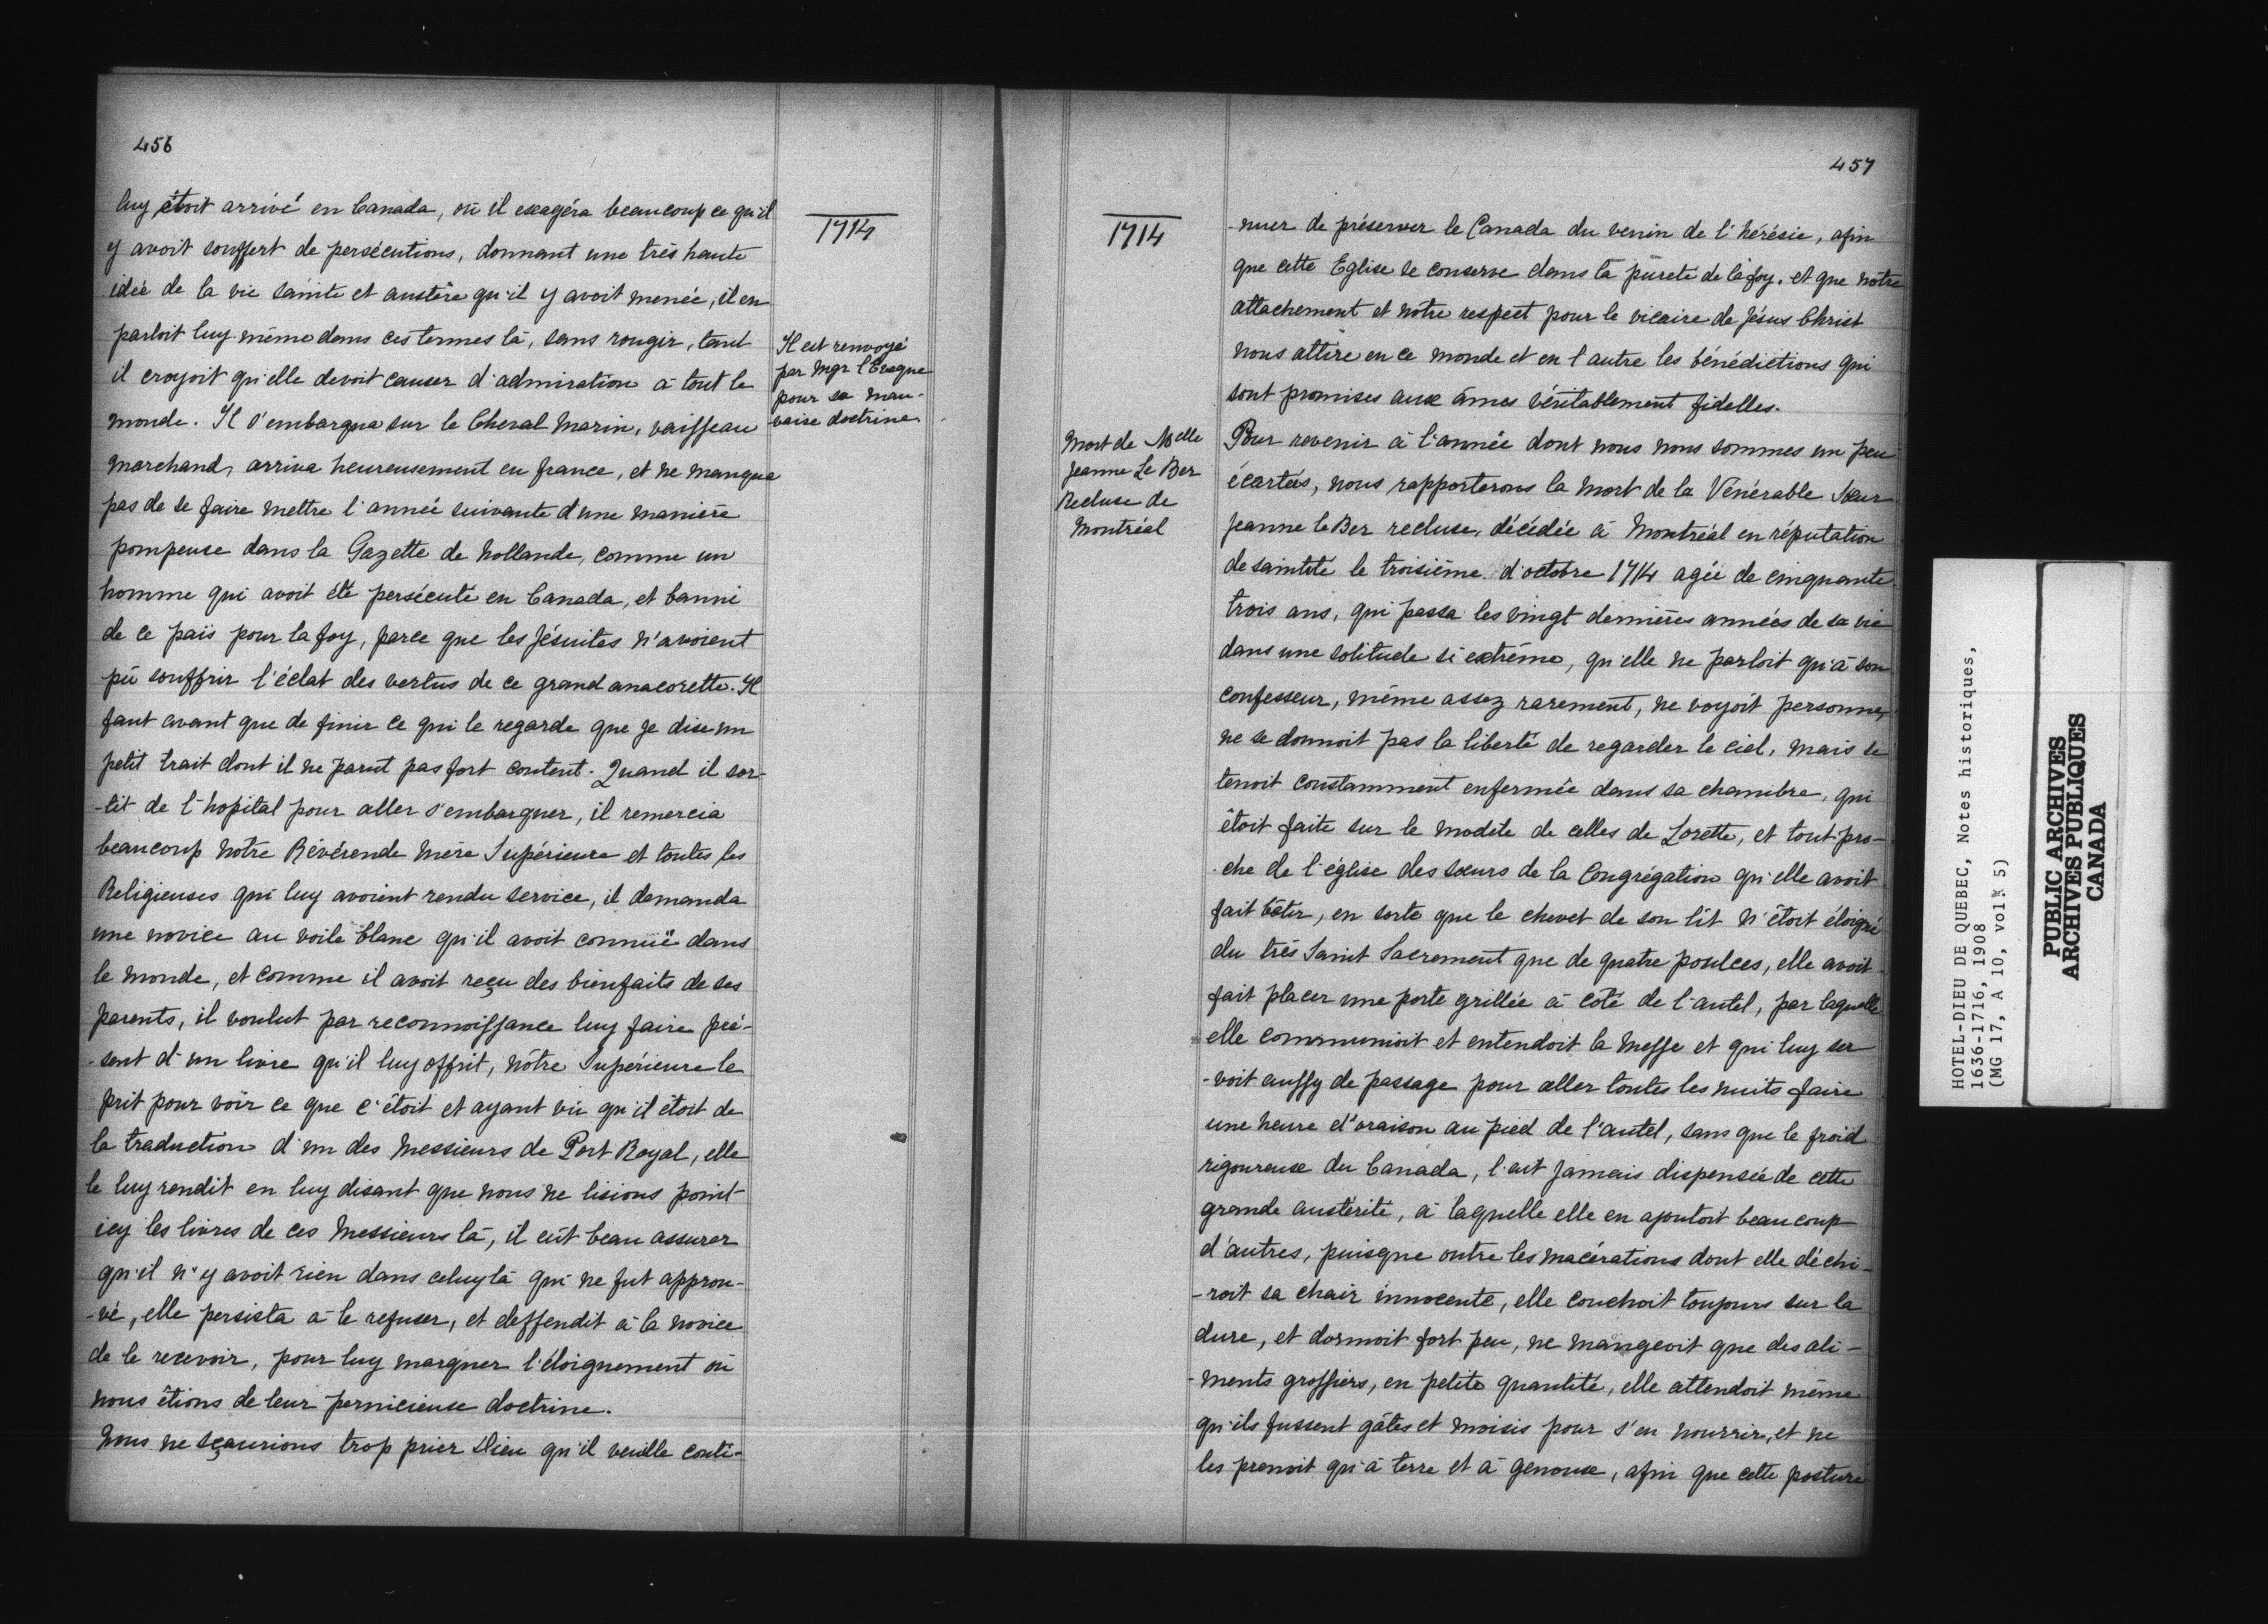 456
luy êtoit arrivé en Canada, où il exagéra beaucoup ce qu'il
y avoit souffert de persécutions, donnant une très haute
idée de la vie sainte et austère qu'il y avoit menée, il en
parloit luy même dans ces termes là, sans rougir, tant
il croyoit qu'elle devoit causer d'admiration à tout le
monde. Il s'embarqua sur le Cheval Marin, vaisseau
marchand, arriva heureusement en france, et ne manqua
pas de se faire mettre l'année suivante d'une manière
pompeuse dans la Gazette de hollande, comme un
homme qui avoit été persécuté en Canada, et banni
de ce païs pour la foy, parce que les Jésuites n'avoient
pû souffrir l'éclat des vertus de ce grand anacorette. Il
faut avant que de finir ce qui le regarde que je dise un
petit trait dont il ne parut pas fort content. Quand il sor-
-tit de l'hopital pour aller s'embarquer, il remercia
beaucoup notre Révérende mère Supérieure et toutes les
Religieuses qui luy avoient rendu service, il demanda
une novice au voile blanc qu'il avoit connüe dans
le monde, et comme il avoit reçu des bienfaits de ses
parents, il voulut par reconnoissance luy faire pré-
-sent d'un livre qu'il luy offrit, nôtre Supérieure le
prit pour voir ce que c'étoit et ayant vû qu'il étoit de
la traduction d'un des Messieurs de Port Royal, elle
le luy rendit en luy disant que nous ne lisions point
icy les livres de ces Messieurs là, il eût beau assurer
qu'il n'y avoit rien dans celuy là qui ne fut approu-
-vé, elle persista à le refuser, et deffendit à la novice
de le recevoir, pour luy marquer l'éloignement où
nous êtions de leur pernicieuse doctrine.
Nous ne sçaurions trop prier Dieu qu'il veuille conti-
1714
Il est renvoyé
par Mgr l'Evêque
pour sa mau-
vaise doctrine
457
1714
Mort de Melle
Jeanne Le Ber
Recluse de
Montréal
-nuer de préserver le Canada du venin de l'hérésie, afin
que cette Eglise se conserve dans la pureté de la foy. et que nôtre
attachement et nôtre respect pour le vicaire de Jésus Christ
nous attire en ce monde et en l'autre les bénédictions qui
sont promises aux âmes véritablement fidelles.
Pour revenir à l'année dont nous nous sommes un peu
écartés, nous rapporterons la mort de la Vénérable Sœur
Jeanne le Ber recluse, décédée à Montréal en réputation
de sainteté le troisième d'octobre 1714 agée de cinquante
trois ans, qui passa les vingt dernières années de sa vie
dans une solitude si extrême, qu'elle ne parloit qu'à son
confesseur, même assez rarement, ne voyoit personne,
ne se donnoit pas la liberté de regarder le ciel, mais se
tenoit constamment enfermée dans sa chambre, qui
êtoit faite sur le modèle de celles de Lorette, et tout pro-
-che de l'église des sœurs de la Congrégation qu'elle avoit
fait bâtir, en sorte que le chevet de son lit n'êtoit éloigné
du très Saint Sacrement que de quatre poulces, elle avoit
fait placer une porte grillée à coté de l'autel, par laquelle
elle communioit et entendoit la messe et qui luy ser
-voit aussy de passage pour aller toutes les nuits faire
une heure d'oraison au pied de l'autel, sans que le froid
rigoureux du Canada, l'ait jamais dispensée de cette
grande austérité, à laquelle elle en ajoutoit beaucoup
d'autres, puisque outre les macérations dont elle déchi-
-roit sa chair innocente, elle couchoit toujours sur la
dure, et dormoit fort peu, ne mangeoit que des ali-
-ments grossiers, en petite quantité, elle attendoit même
qu'ils fussent gâtés et moisis pour s'en nourrir, et ne
les prenoit qu'à terre et à genoux, afin que cette posture
HOTEL-DIEU DE QUEBEC, Notes historiques,
1636-1716, 1908
(MG 17, A 10, vol. 5)
PUBLIC ARCHIVES
ARCHIVES PUBLIQUES
CANADA